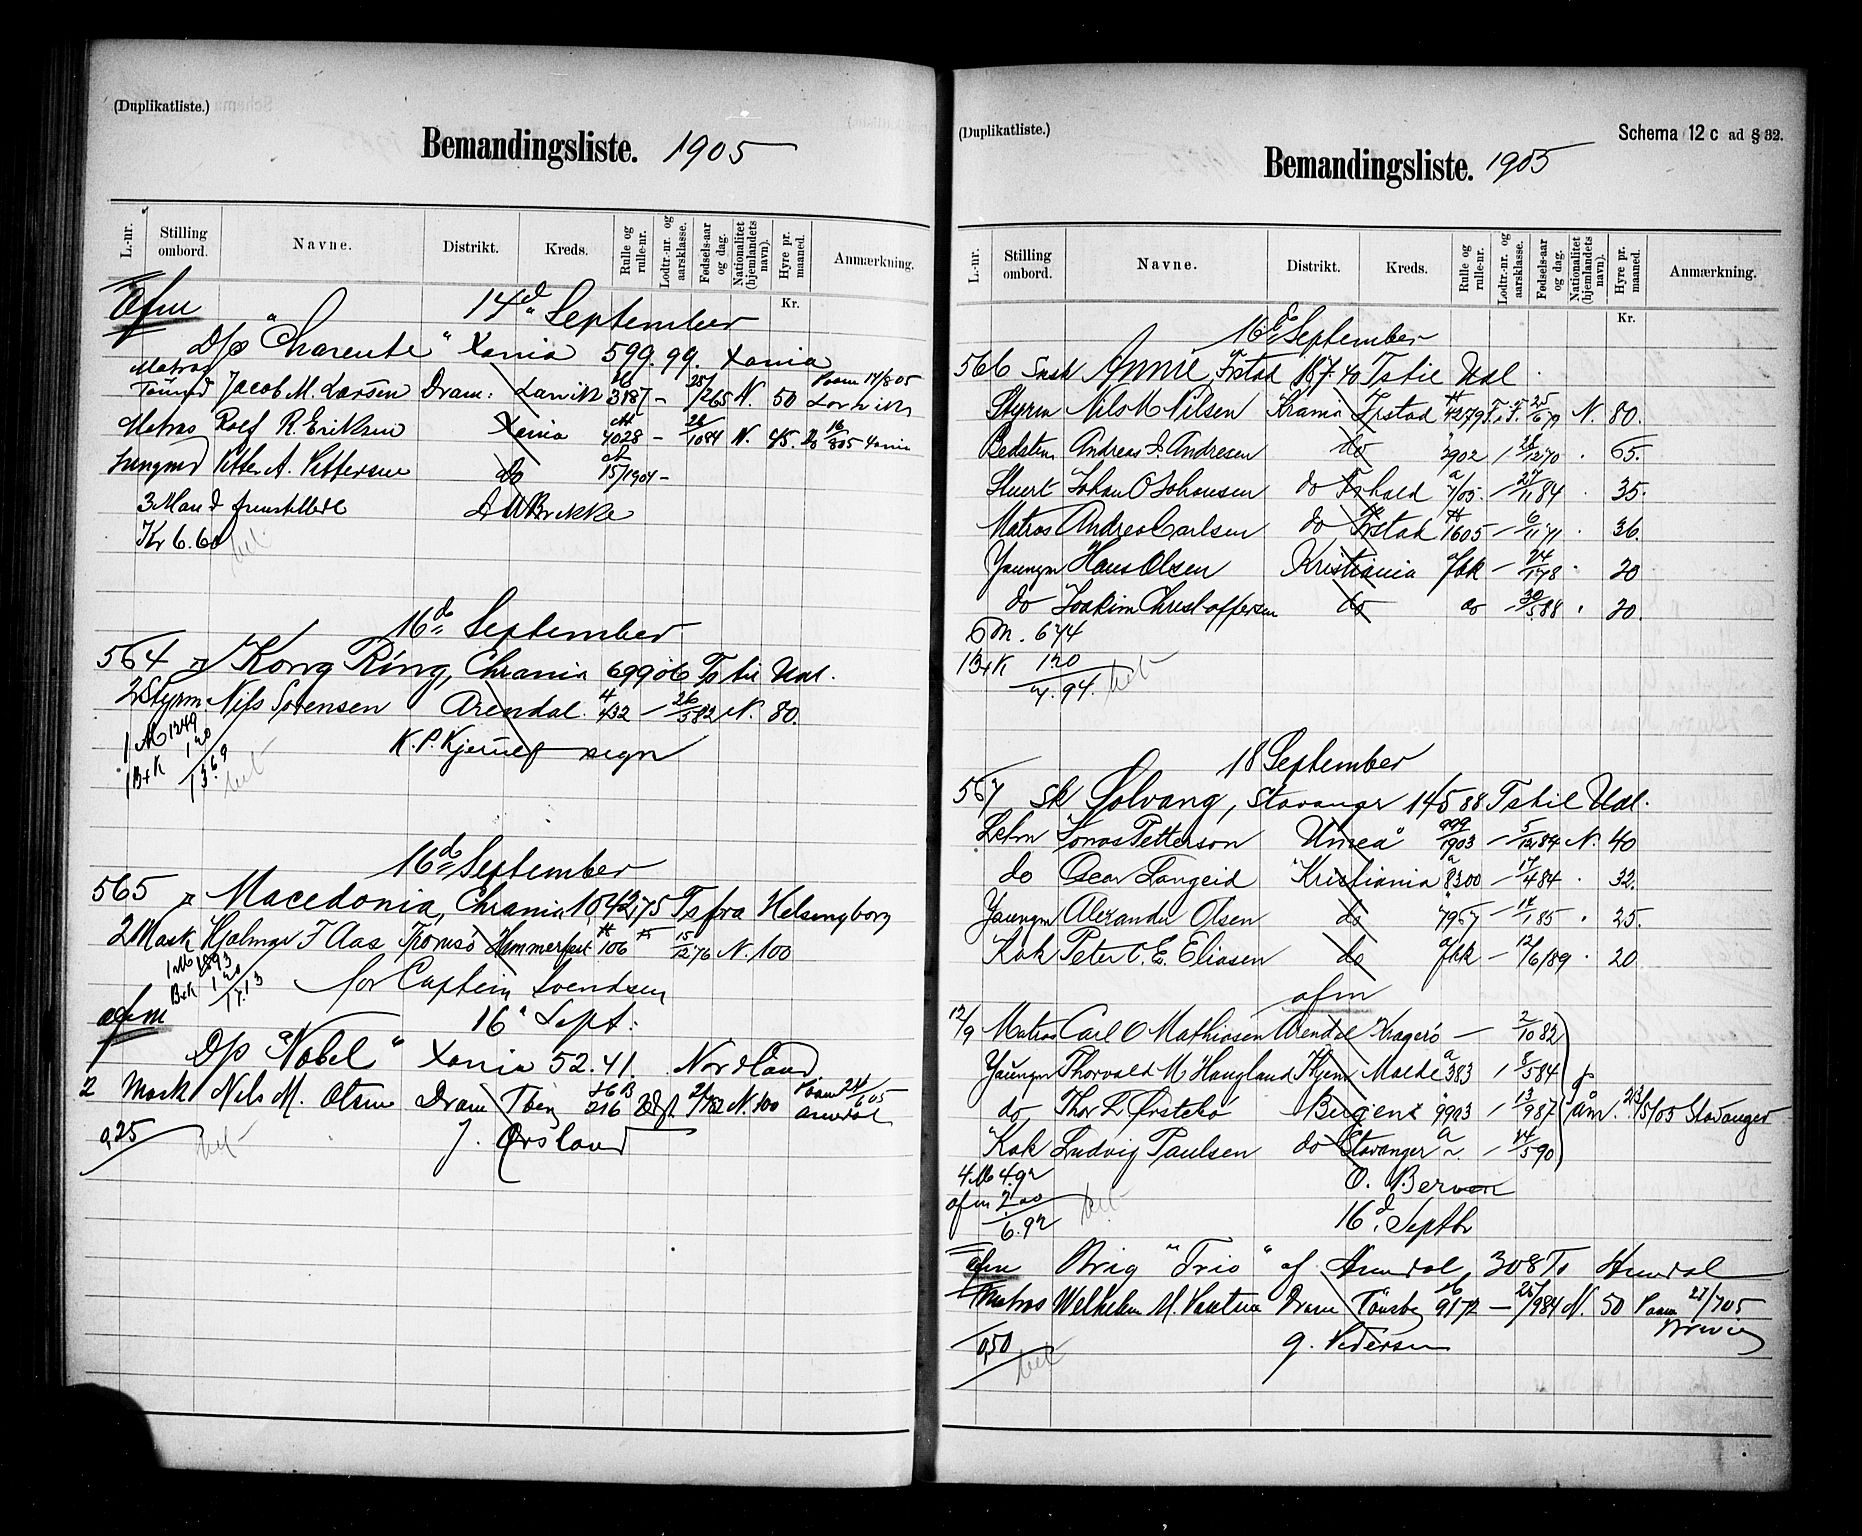 (Duplikatliste.)
Bemandingsliste. 1905
L.-nr. Stilling ombord. Navne. Distrikt. Kreds. Rulle og rulle-nr. Lodtr.-nr. og aarsklasse. Fødsels-aar og dag. Nationalitet (hjemlandets navn). Hyre pr. maaned. Anmærkning.
Kr.
Afm 14d September
D/s "Charente" Xania 599.99. Xania
Matros
Tømmd Jacob M. Larsen Dram: Larvik 3187 - 25/2 65 N. 50 Paam 14/8 05 Larvik
Matros Rolf R. Eriksen Xania 4028 - 26/10 84 N. 45. 16/8 05 Xania
Jungmd Petter A. Pettersen do 15/1904 -
3 Mand fremstillede A M Brekke
Kr 6.60 bet.
16d September
564 Kong Ring, Chrania 699 06 Ts til Udl.
2 Styrm Nils Sørensen Arendal. 432 - 26/5 82 N. 80
1 M 12 49 K. P. Kjerulf sign
1 B+K 1 20
13.69 bet
16d September
565 Macedonia, Chrania 1042,75 Ts fra Helsingborg
2 Mask Hjalmar F Aas Tromsø Hammerfest 106 15/12 76 N. 100
1 M 15 93
B+K 1 20 for Captein Svendsen
17.13
afm 16' Sept:
D/s "Nobel" Xania 52.41. Nordland
2 Mask Nils M. Olsen Dram Tbeg 216 N. 100 Paam 24/6 05 Arendal
0,25 bet J. Ørsland
(Duplikatliste.) Schema 12 c ad § 32.
Bemandingsliste. 1905
L.-nr. Stilling ombord. Navne. Distrikt. Kreds. Rulle og rulle-nr. Lodtr.-nr. og aarsklasse. Fødsels-aar og dag. Nationalitet (hjemlandets navn). Hyre pr. maaned. Anmærkning.
Kr.
16d September
566 Annie, Frstad 187.40 Ts til Udl.
Styrm Nils M Nilsen Krania Frstad 4279 25/6 79 N. 80.
Bedstm Andreas Andresen do 2902 28/12 70 . 65.
Stuert Johan O Johansen do Frhald 7/05 - 27/11 84 . 35.
Matros Andrea Carlsen do Frstad 1605 - 6/11 71 . 36.
Youngm Hans Olsen Kristiania Jbk - 24/1 78 . 20
do Joakim Christoffersen do do - 30/5 88 . 20.
6 M. 6 74
1 B+K 1 20
7.94. bet
18 September
567 Sk Solvang, Stavanger 145 88 Ts til Udl.
Letm Jonas Petterson Umeå 999/1903 - 5/12 84 N. 40
do Oscar Langeid Kristiania 8300 - 17/4 84 . 32.
Youngm Alexander Olsen do 7967 - 12/1 85 . 25.
Kok Peter C. E. Eliasen do Jbk - 12/6/89 . 20
afm
12/9 Matros Carl O Mathiasen Arendal Kragerø - 2/10 82
Youngm Thorvald M Haugland Hjem Molde 383 8/5 84
do Thor L Ørstebø Bergens 9903 13/9 87 åm. 23/5/05 Stavanger
Kok Ludvig Paulsen do Stavanger 14/5 90
4 M 4.92 O. Berven
afm 2.00
6.92 bet 16d. Septbr
afm Brig "Trio" af Arendal 308 Ts Arendal
Matros Welhelm M. Dram Tønsbg 9172 - 26/9 84 N. 50 Paam 27/7 05 Brevig
0,50 bet G. Pedersen